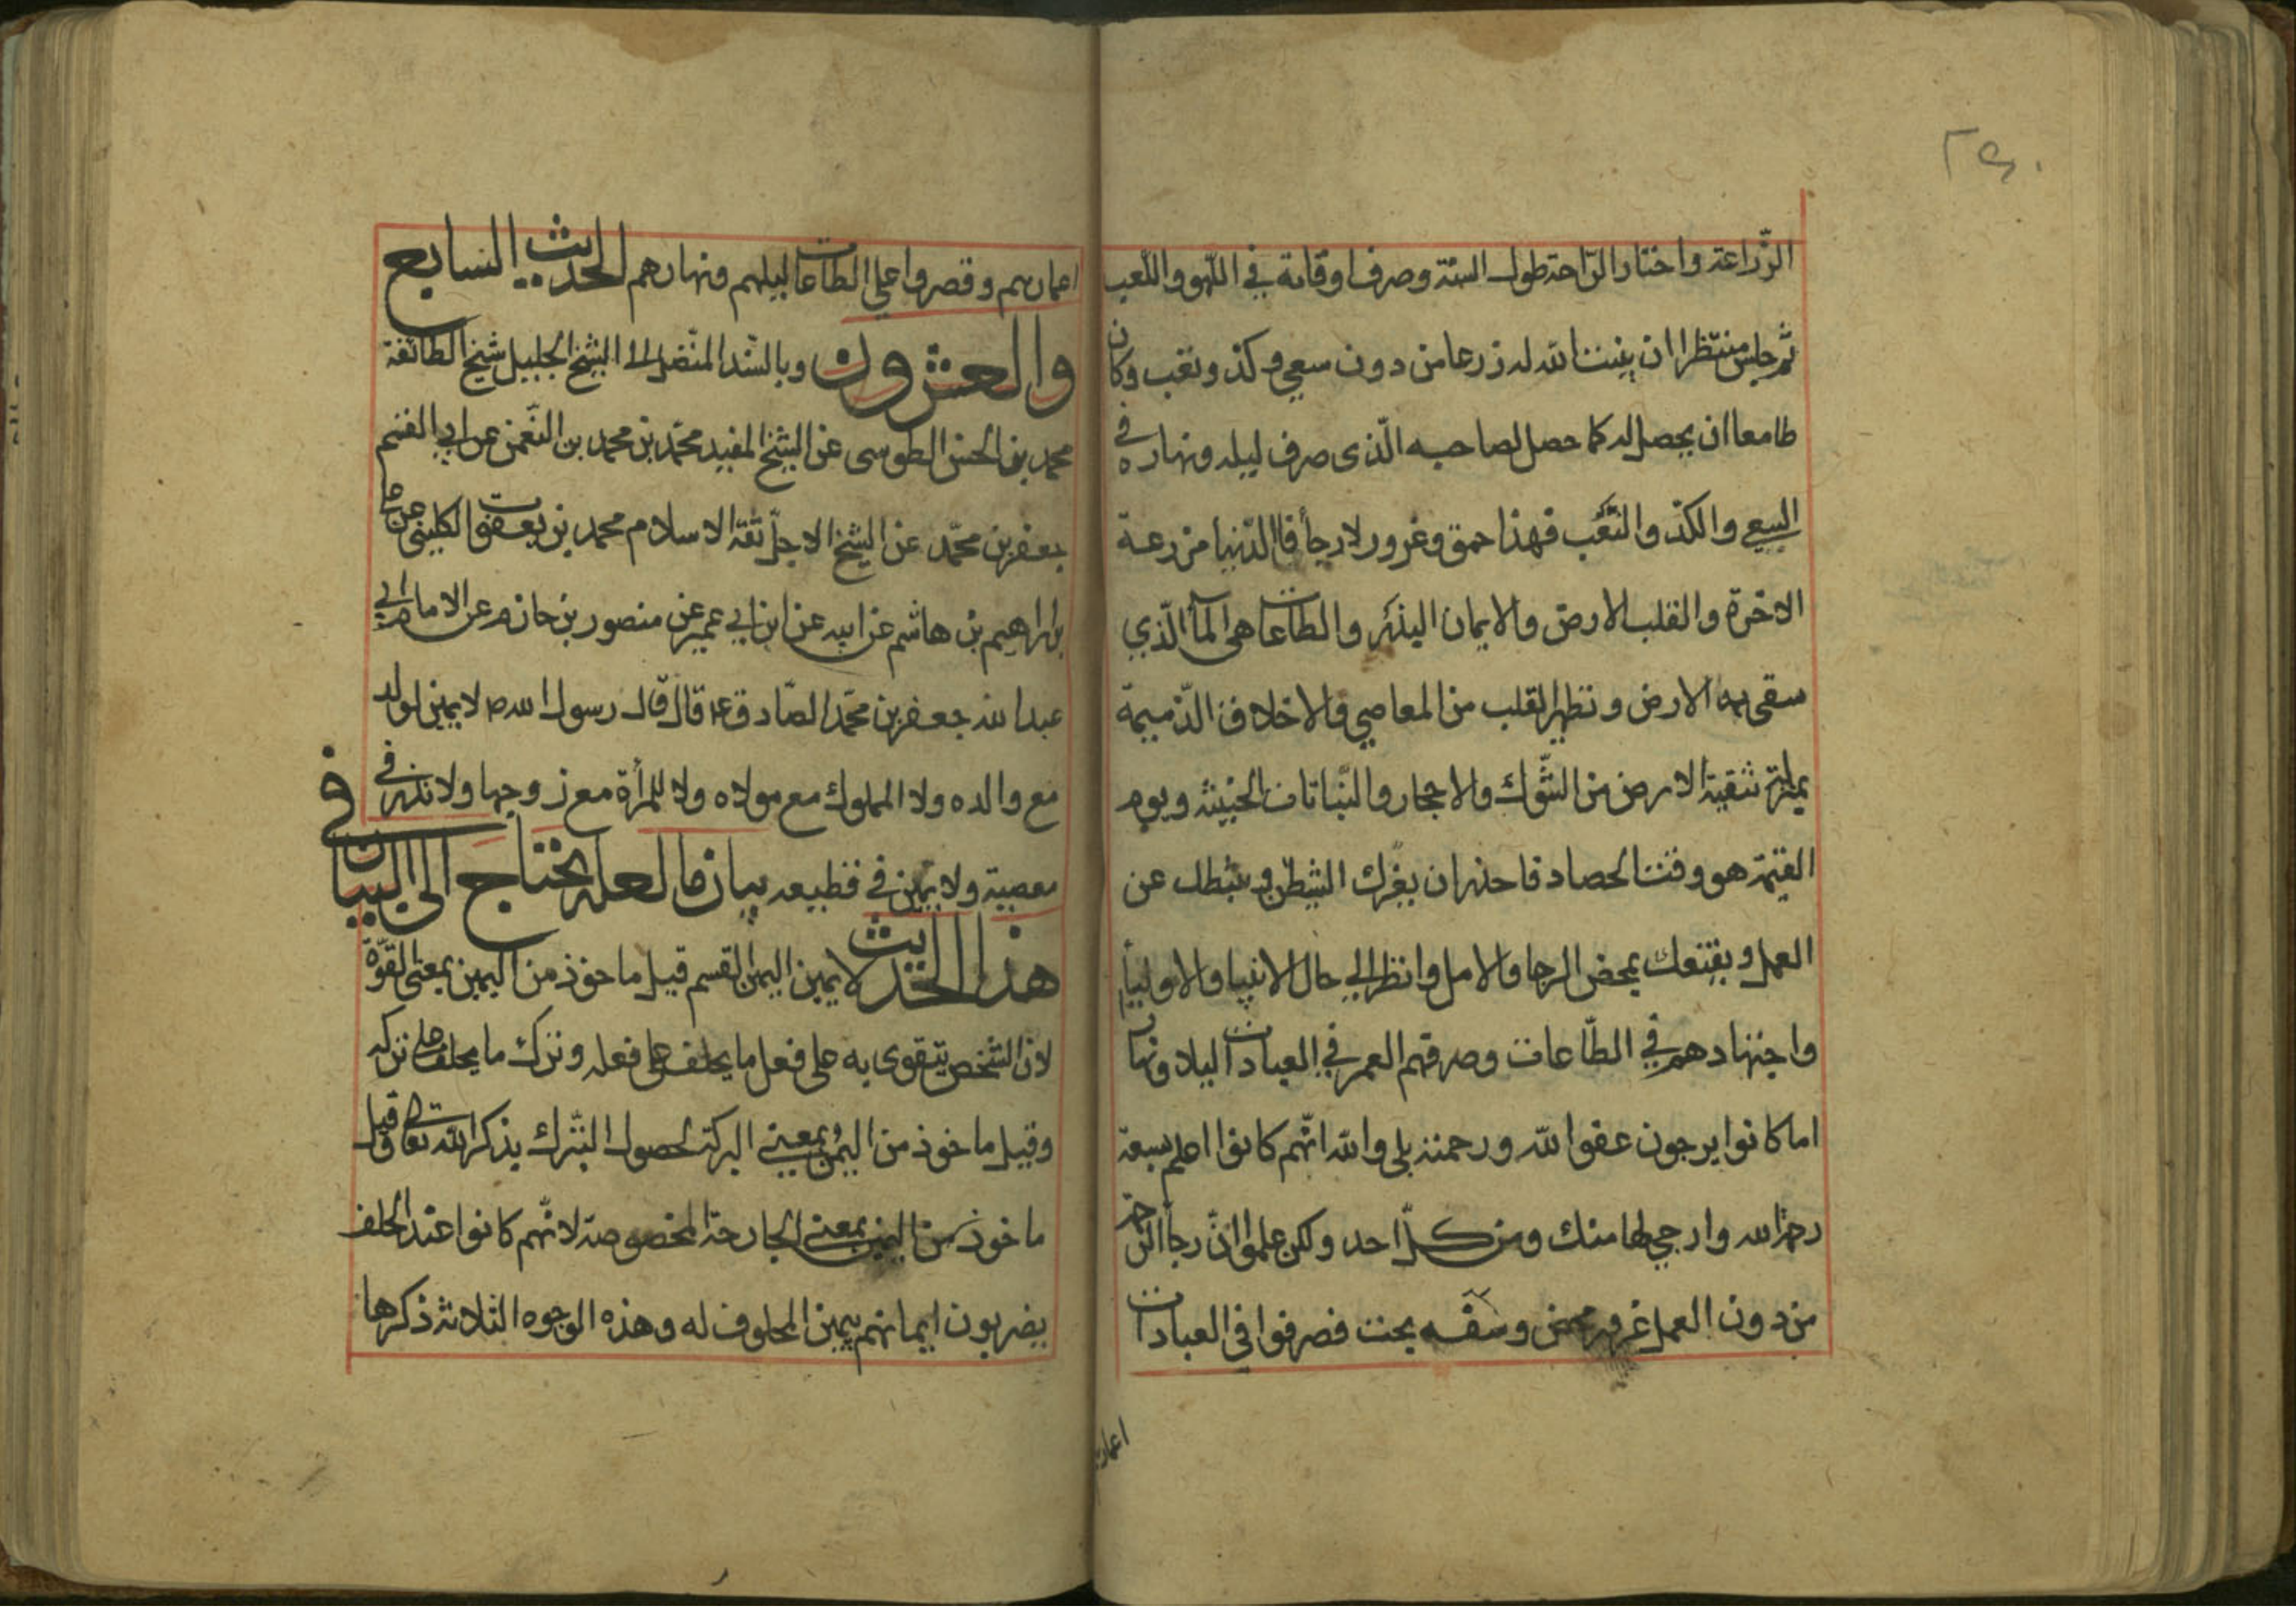 ٢٤٠
الزّراعة واختار الرّاحة طول السنة وصرف اوقاته في اللّهو واللّعب
ثم جلس منتظرا ان ينبت الله له زرعا من دون سعي وكدّ وتعب وكان
طامعا ان يحصل له كما حصل لصاحبه الّذى صرف ليله ونهاره في
السعي والكدّ والتّعب فهذا حمق وغرور لا رجأ فالدّنيا مزرعة
الاخرة والقلب الارض والايمان البذر والطاعات هى المآ الّذي
سقى به الارض وتطهير القلب من المعاصي والاخلاق الذّميمة
بمنزلة تنقية الارض من الشّوك والاحجار والنّباتات الخبيثة ويوم
القيمة هو وقت الحصاد فاحذر ان يغرّك الشيطن ويثبطك عن
العمل ويقنعك بمحض الرجا والامل وانظر الى حال الانبيا والاوليأ
واجتهادهم في الطّاعات وصرفهم العمر في العبادات ليلا ونهارا
اما كانوا يرجون عفو الله ورحمته بلى والله انّهم كانوا اعلم بسعة
رحمة الله وارجي لها منك ومن كلّ احد ولكن علموا انّ رجأ الرحمة
من دون العمل غرور محض وسفه بحت فصرفوا في العبادات
اعمارهم
اعمارهم وقصروا على الطاعات ليلهم ونهارهم الحديث السابع
والعشرون وبالسّند المتّصل الى الشيخ الجليل شيخ الطائفة
محمد بن الحسن الطوسى عن الشيخ المفيد محمّد بن محمد بن النّعمن عن ابى القسم
جعفر بن محمّد عن الشيخ الاجلّ ثقة الاسلام محمد بن يعقوب الكلينى عن على
بن ابراهيم بن هاشم عن ابيه عن ابن ابي عمير عن منصور بن حازم عن الامام ابي
عبد الله جعفر بن محمّد الصّادق ع قال قال رسول الله ص لا يمين لولد
مع والده ولا المملوك مع مولاه ولا للمرأة مع زوجها ولا نذر في
معصية ولا يمين في قطيعه بيان ما لعله يحتاج الى البيان في
هذا الحديث لا يمين اليمين القسم قيل ماخوذ من اليمين بمعنى القوّة
لان الشخص يتقوى به على فعل ما يحلف على فعله وترك ما يحلف على تركه
وقيل ماخوذ من اليمن بمعنى البركة لحصول التبّرك بذكر الله تعالى وقيل
ماخوذ من اليمين بمعنى الجارحة المخصوصة لانّهم كانوا عند الحلف
يضربون ايمانهم بيمين المحلوف له وهذه الوجوه الثلاثة ذكرها